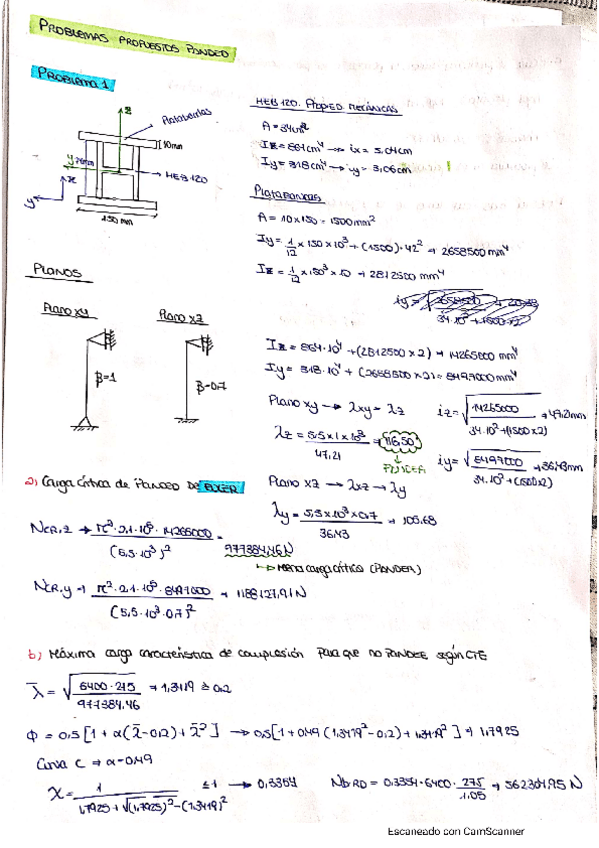 PROBLEMAS PROPUESTOS PANDEO
PROBLEMA 1
z
Platabandas
10mm
y
x
HEB 120
y
150 mm
HEB 120. PROPIED. MECÁNICAS
A = 34cm²
Iz = 864cm⁴ → ix = 5,04cm
Iy = 318cm⁴ → iy = 3,06cm
PLATABANDAS
A = 10 x 150 = 1500mm²
Iy = 1/12 x 150 x 10³ + (1500) · 42² → 2658500 mm⁴
Iz = 1/12 x 150³ x 10 → 2812500 mm⁴
PLANOS
Plano xy
Plano xz
β=1
β=0.7
Iz = 864·10⁴ + (2812500 x 2) → 14265000 mm⁴
Iy = 318·10⁴ + (2658500 x 2) = 8497000mm⁴
Plano xy → λxy = λz
iz = √14265000 / 34·10² + (1500x2) → 47,21mm
λz = 5,5 x 1 x 10³ / 47,21 → 116,50
PANDEA
iy = √8497000 / 34·10² + (1500x2) → 36,43mm
a) Carga crítica de PANDEO DE EULER
Plano xz → λxz → λy
λy = 5,5 x 10³ x 0,7 / 36,43 → 105,68
Ncr,z → π² · 2,1·10⁵ · 14265000 / (5,5·10³)² = 977384,46 N
↳ Menor carga crítica (PANDEA)
Ncr,y → π² · 2,1·10⁵ · 8497000 / (5,5·10³·0,7)² → 1188127,91 N
b) Máxima carga característica de compresión para que no PANDEE según CTE
λ̄ = √6400 · 275 / 977384,46 → 1,3419 ≥ 0,2
Φ = 0,5 [1 + α(λ̄-0,2) + λ̄²] → 0,5 [1 + 0,49 (1,3419² - 0,2) + 1,3419²] → 1,7925
Curva C → α = 0,49
χ = 1 / 1,7925 + √(1,7925)² - (1,3419)² ≤ 1 → 0,3354
Nb,RD = 0,3354 · 6400 · 275 / 1.05 → 562304,95 N
Escaneado con CamScanner